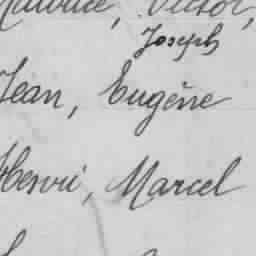 Maurice, Victor,
Joseph
Jean, Eugène
Henri, Marcel